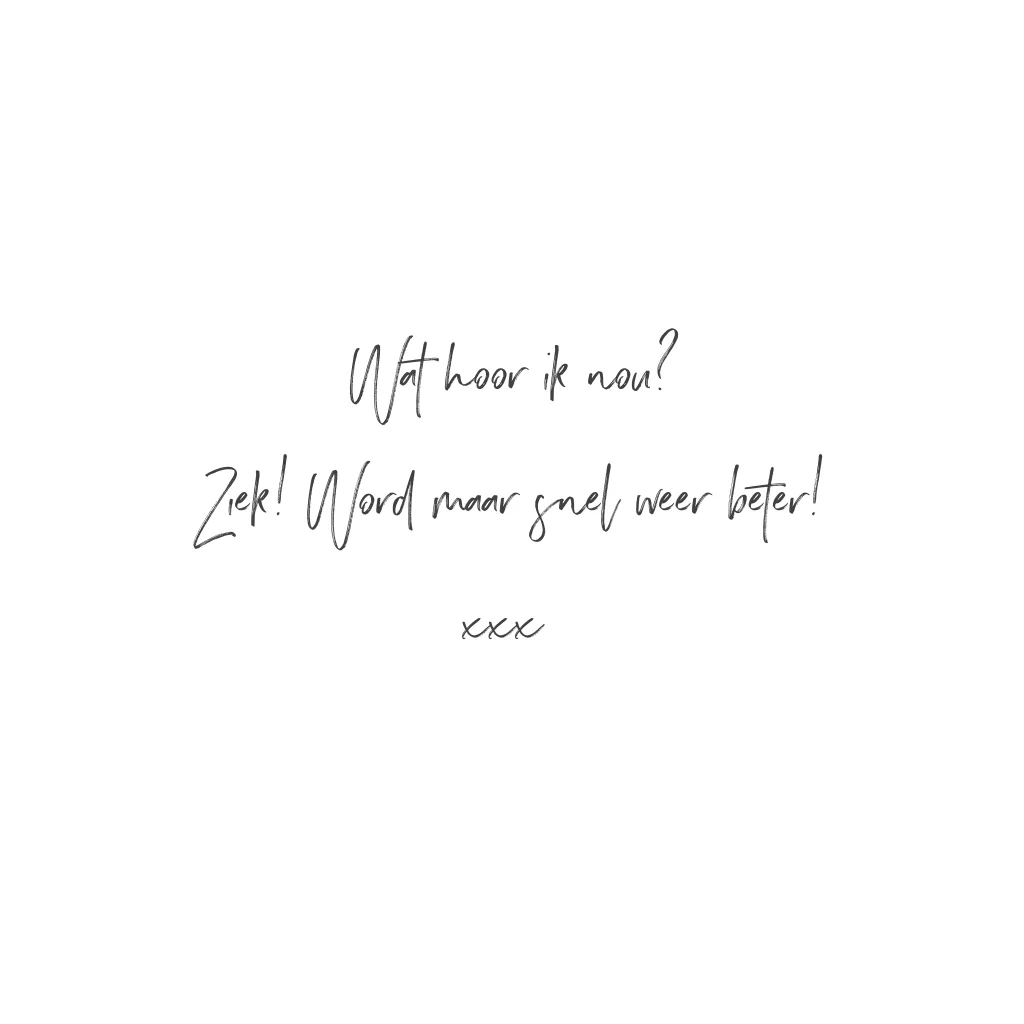 Wat hoor ik nou?
Ziek! Word maar snel weer beter!
xxx